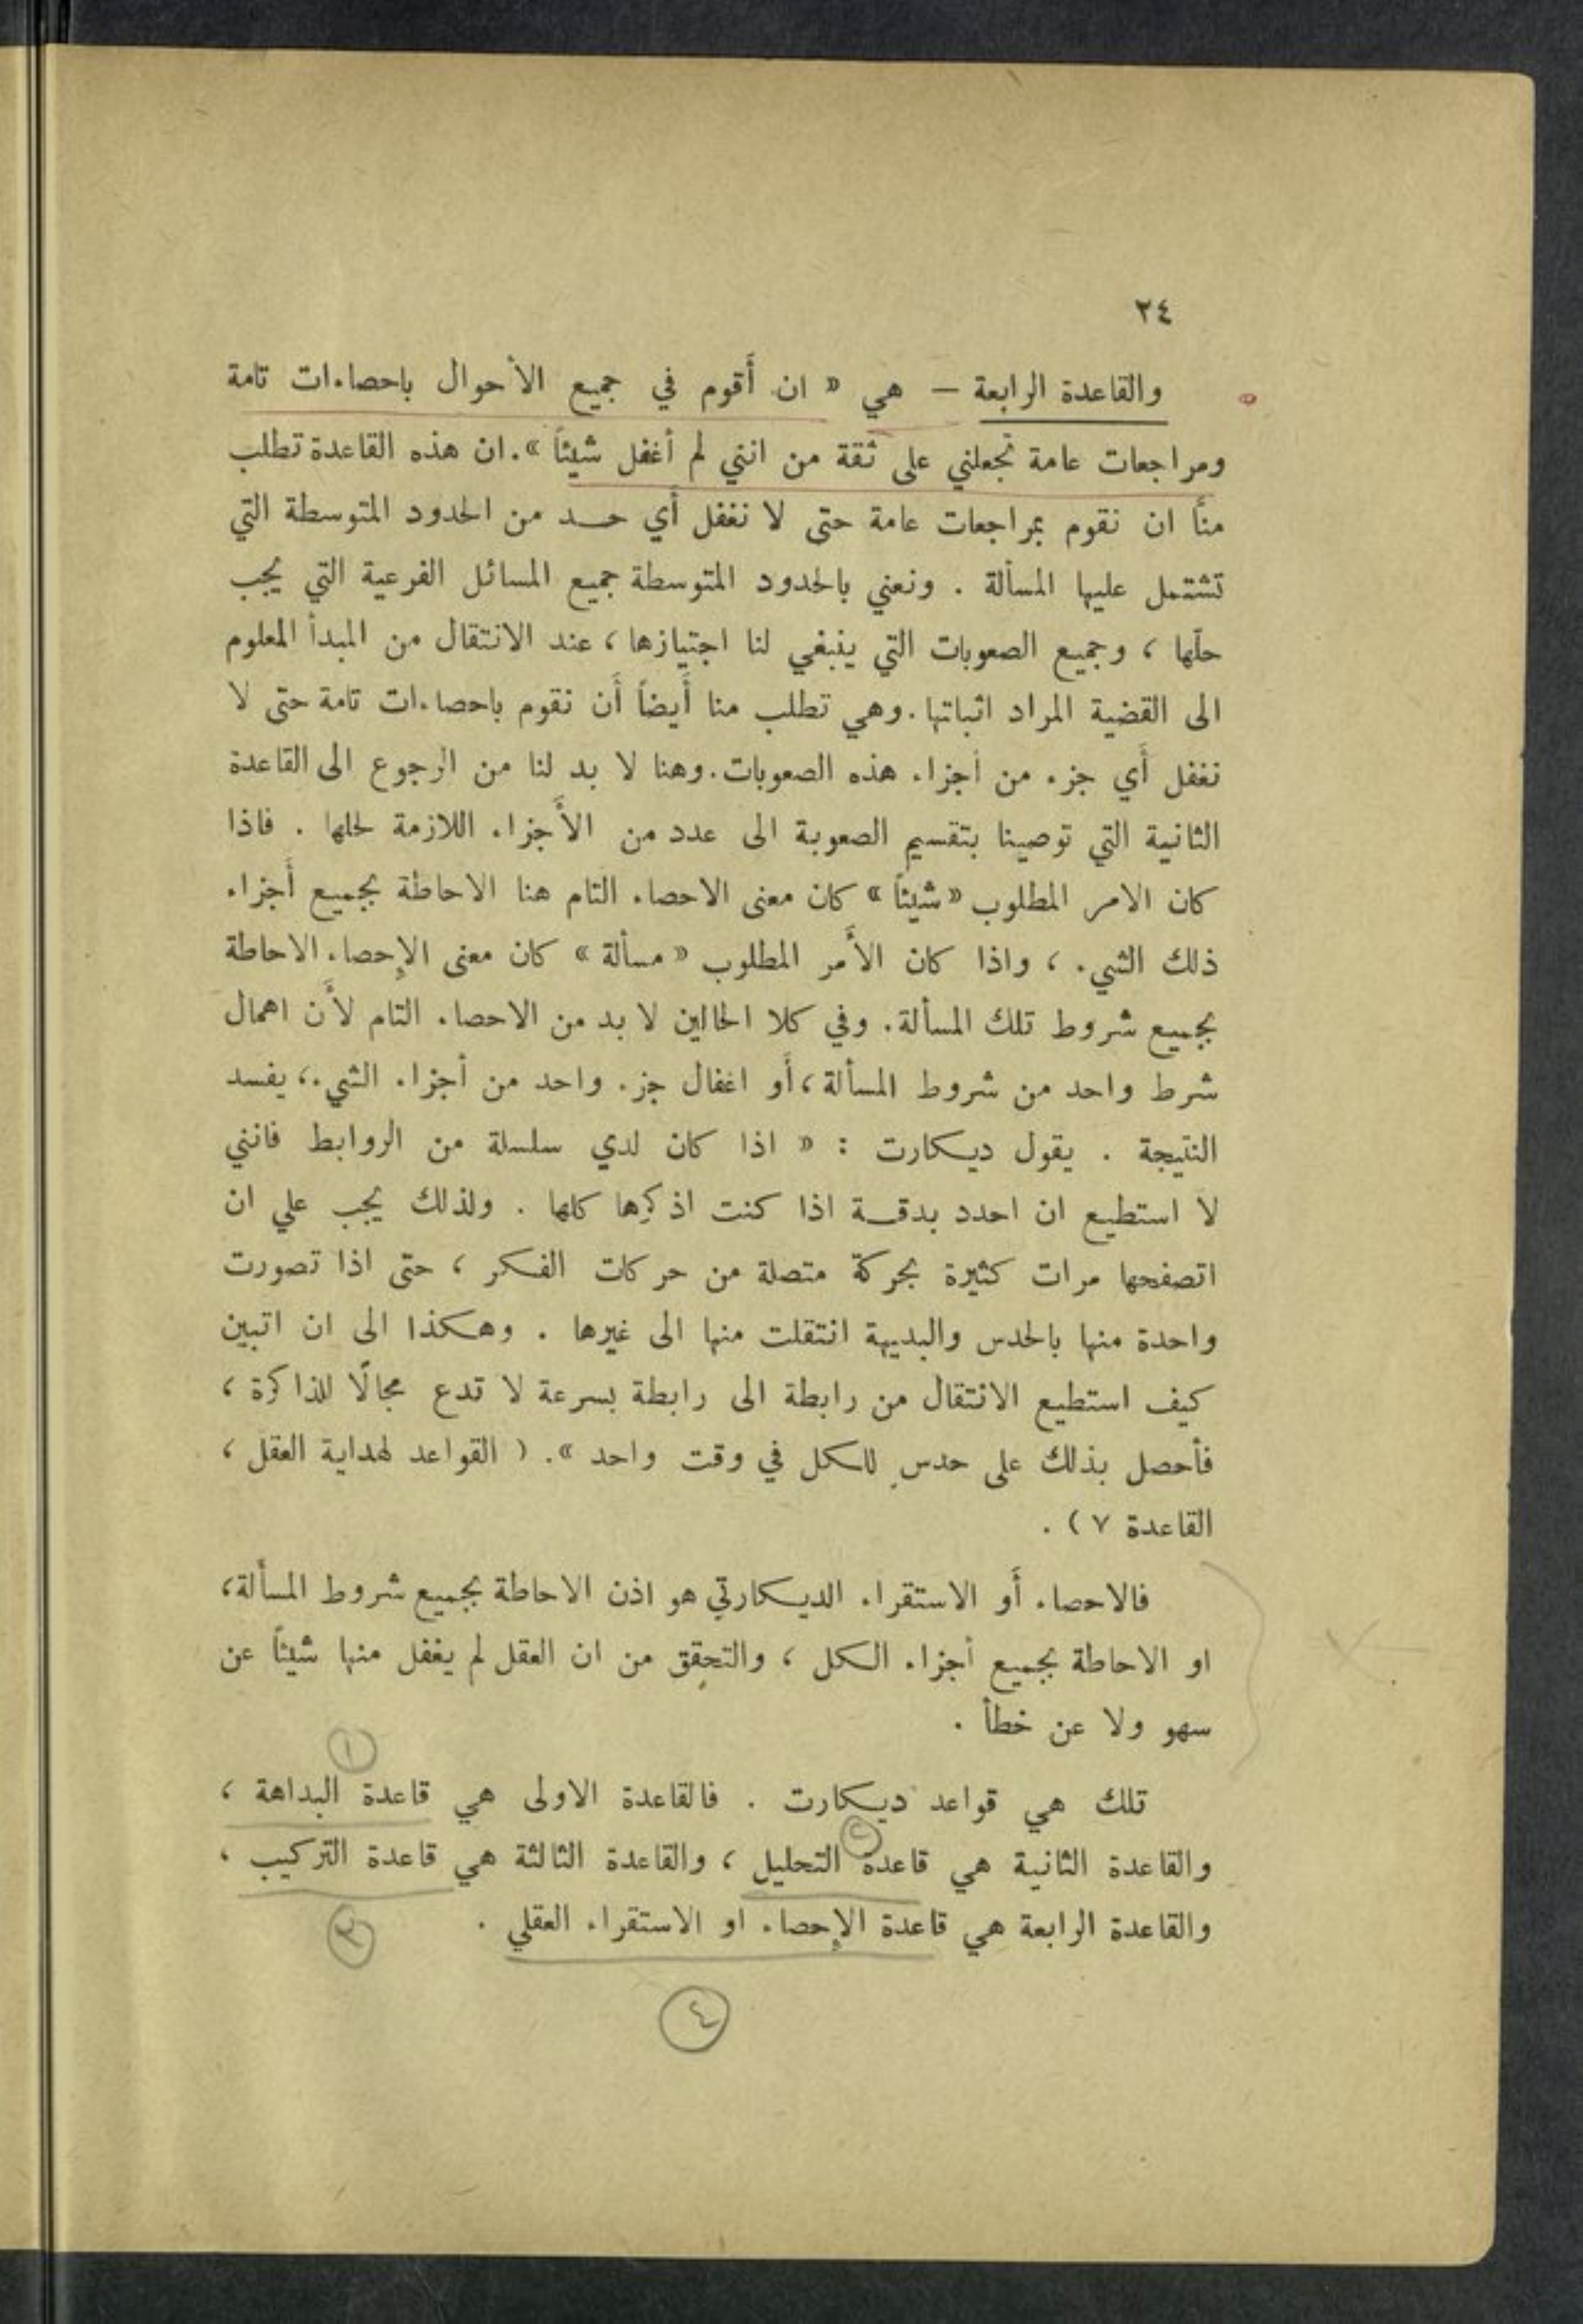 ٢٤
والقاعدة الرابعة — هي « ان أَقوم في جميع الأحوال باحصاءات تامة
ومراجعات عامة تجعلني على ثقة من انني لم أغفل شيئاً ». ان هذه القاعدة تطلب
منَّا ان نقوم بمراجعات عامة حتى لا نغفل أَي حد من الحدود المتوسطة التي
تشتمل عليها المسألة . ونعني بالحدود المتوسطة جميع المسائل الفرعية التي يجب
حلّها ، وجميع الصعوبات التي ينبغي لنا اجتيازها ، عند الانتقال من المبدأ المعلوم
الى القضية المراد اثباتها . وهي تطلب منا أَيضاً أَن نقوم باحصاءات تامة حتى لا
نغفل أَي جزء من أجزاء هذه الصعوبات . وهنا لا بد لنا من الرجوع الى القاعدة
الثانية التي توصينا بتقسيم الصعوبة الى عدد من الأَجزاء اللازمة لحلها . فاذا
كان الامر المطلوب « شيئاً » كان معنى الاحصاء التام هنا الاحاطة بجميع أَجزاء
ذلك الشيء ، واذا كان الأَمر المطلوب « مسألة » كان معنى الإحصاء الاحاطة
بجميع شروط تلك المسألة . وفي كلا الحالين لا بد من الاحصاء التام لأَن اهمال
شرط واحد من شروط المسألة ، أَو اغفال جزء واحد من أجزاء الشيء ، يفسد
النتيجة . يقول ديكارت : « اذا كان لدي سلسلة من الروابط فانني
لا استطيع ان احدد بدقة اذا كنت اذكرها كلها . ولذلك يجب علي ان
اتصفحها مرات كثيرة بحركة متصلة من حركات الفكر ، حتى اذا تصورت
واحدة منها بالحدس والبديهة انتقلت منها الى غيرها . وهكذا الى ان اتبين
كيف استطيع الانتقال من رابطة الى رابطة بسرعة لا تدع مجالًا للذاكرة ،
فأحصل بذلك على حدسٍ للكل في وقت واحد ». ( القواعد لهداية العقل ،
القاعدة ٧ ) .
فالاحصاء أَو الاستقراء الديكارتي هو اذن الاحاطة بجميع شروط المسألة ،
او الاحاطة بجميع أجزاء الكل ، والتحقِق من ان العقل لم يغفل منها شيئاً عن
سهو ولا عن خطأ .
١
تلك هي قواعد ديكارت . فالقاعدة الاولى هي قاعدة البداهة ،
٢
والقاعدة الثانية هي قاعدة التحليل ، والقاعدة الثالثة هي قاعدة التركيب ،
والقاعدة الرابعة هي قاعدة الإحصاء او الاستقراء العقلي .
٣
٤